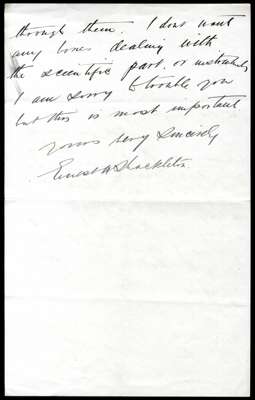 through them. I dont want
any ones dealing with
the scientific part. or
I am sorry to trouble you
but this is most important
yours very sincerely
Ernest H Shackleton